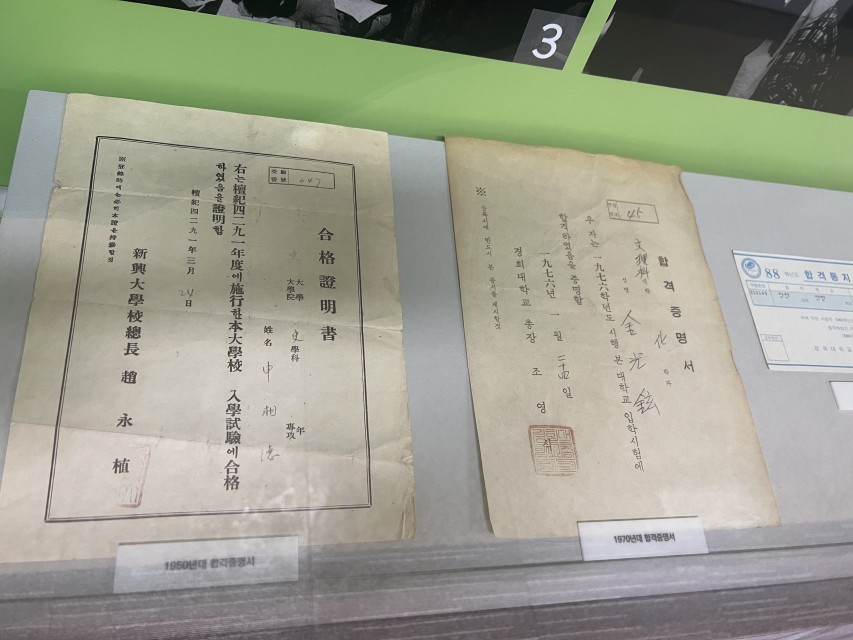 3
受驗番號
合格證明書
大學
大學院
史學科
年
專攻
姓名 申相
右는檀紀四二九一年度에施行한本大學校 入學試驗에合格
하였음을證明함
檀紀四二九一年三月 24日
新興大學校總長 趙永植
1950년대 합격증명서
수험번호 45
합격증명서
文理科대학 化학과
성명 金光鉉
우 자는 一九七六학년도 시행 본 대학교 입학시험에
합격하였음을 증명함
一九七六년 一월 二十四일
경희대학교 총장 조영식
※ 등록시에 반드시 본 증을 제시할것
1970년대 합격증명서
88 학년도 합격통지